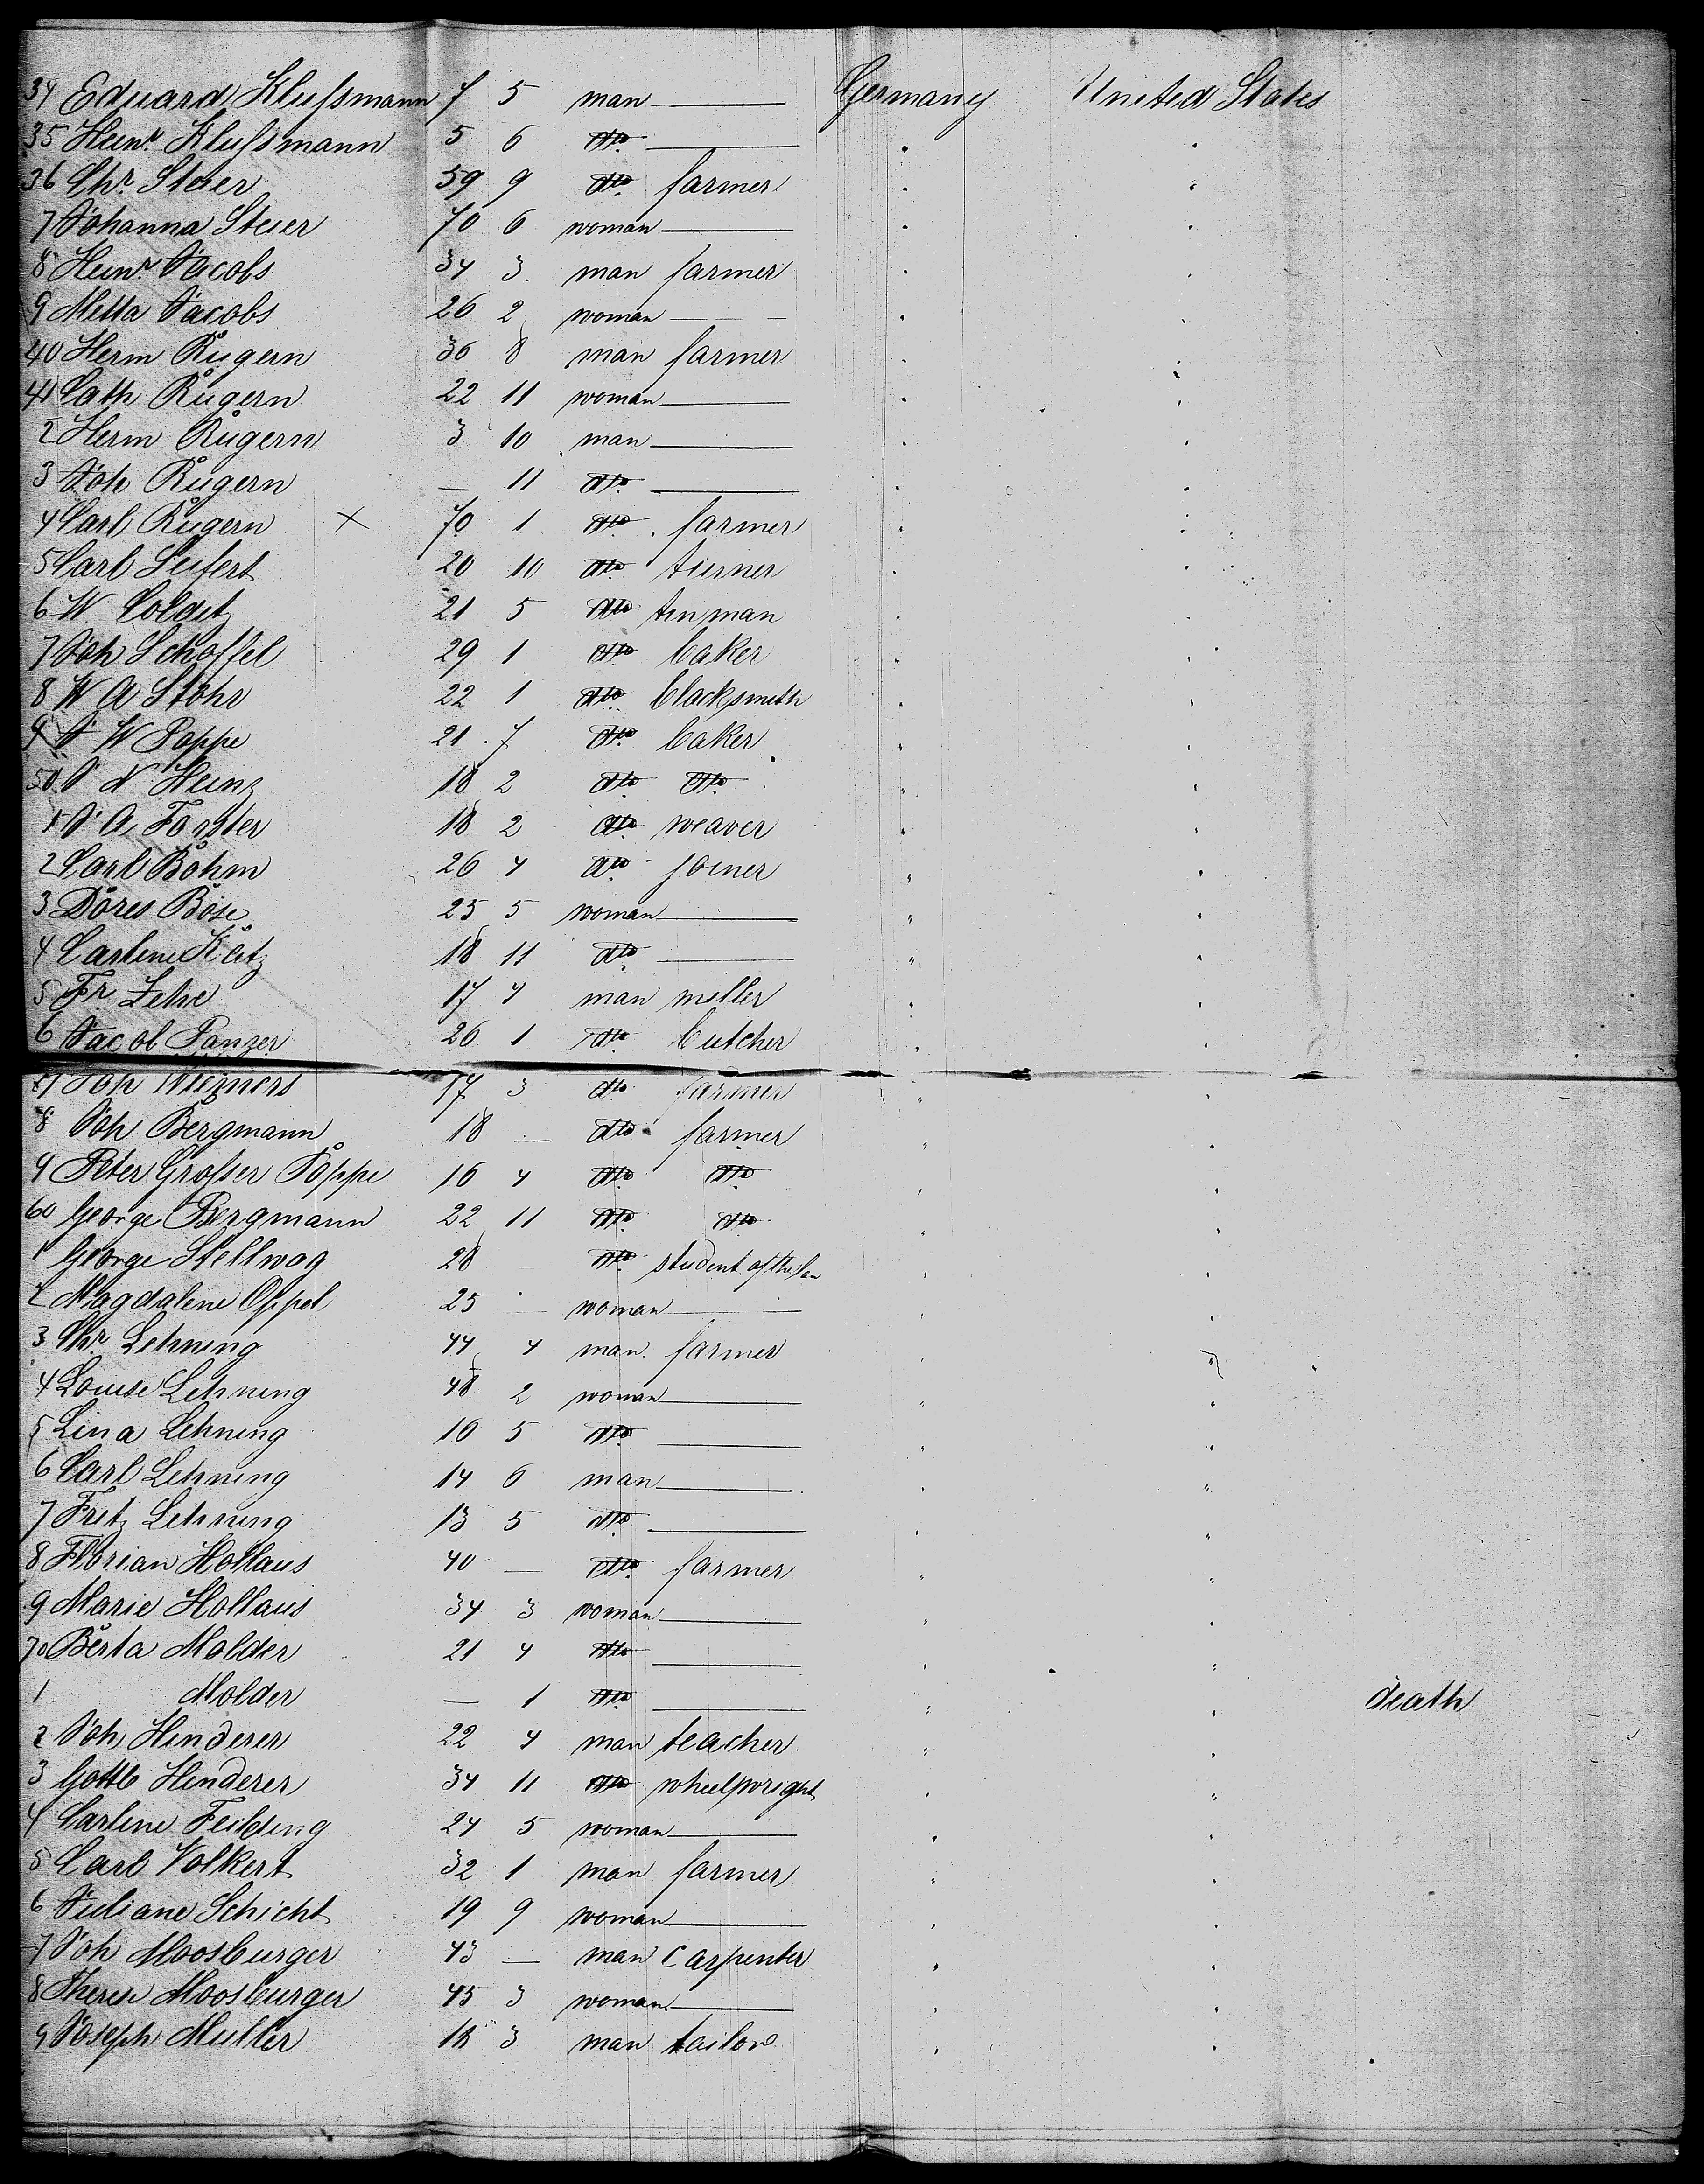 34 Eduard Klußmann 7 5 man — Germany United States
35 Heinr. Klußmann 5 6 dto — " "
36 Chr. Steier 59 9 dto farmer " "
7 Johanna Steier 70 6 woman — " "
8 Heinr. Jacobs 34 3 man farmer " "
9 Metta Jacobs 26 2 woman — " "
40 Herm Rügern 36 8 man farmer " "
41 Cath Rügern 22 11 woman — " "
2 Herm Rügern 3 10 man — " "
3 Joh Rügern — 11 dto — " "
4 Carl Rügern × 70 1 dto farmer " "
5 Carl Seifert 20 10 dto turner " "
6 W Colditz 21 5 dto tinman " "
7 Joh Schoffel 29 1 dto baker " "
8 W A Stöhr 22 1 dto blacksmith " "
9 J W Poppe 21 7 dto baker " "
50 J N Heinz 18 2 dto dto " "
1 J A Förster 18 2 dto weaver " "
2 Carl Böhm 26 4 dto joiner " "
3 Dores Böse 25 5 woman — " "
4 Carline Kätz 18 11 dto — " "
5 Fr Zehe 17 4 man miller " "
6 Jacob Panzer 26 1 dto butcher " "
57 Joh 17 3 dto farmer " "
8 Joh Bergmann 18 — dto farmer " "
9 Peter Großer Pöppe 16 4 dto dto " "
60 George Bergmann 22 11 dto dto " "
1 George Stellwag 28 dto student of the law " "
2 Magdalene Oppel 25 — woman — " "
3 Chr. Lehning 44 4 man farmer " "
4 Louise Lehning 48 2 woman — " "
5 Lina Lehning 16 5 dto — " "
6 Carl Lehning 14 6 man — " "
7 Fritz Lehning 13 5 dto — " "
8 Florian Hollaus 40 — dto farmer " "
9 Marie Hollaus 34 3 woman — " "
70 Berta Molder 21 4 dto — " "
1 Molder — 1 dto — " " death
2 Joh Hinderer 22 4 man teacher " "
3 Gottlb Hinderer 34 11 dto wheelwright " "
4 Carline 24 5 woman — " "
5 Carl Volkert 32 1 man farmer " "
6 Juliane Schicht 19 9 woman — " "
7 Joh Moosburger 43 — man carpenter " "
8 Theres Moosburger 45 3 woman — " "
9 Joseph Muller 18 3 man tailor " "